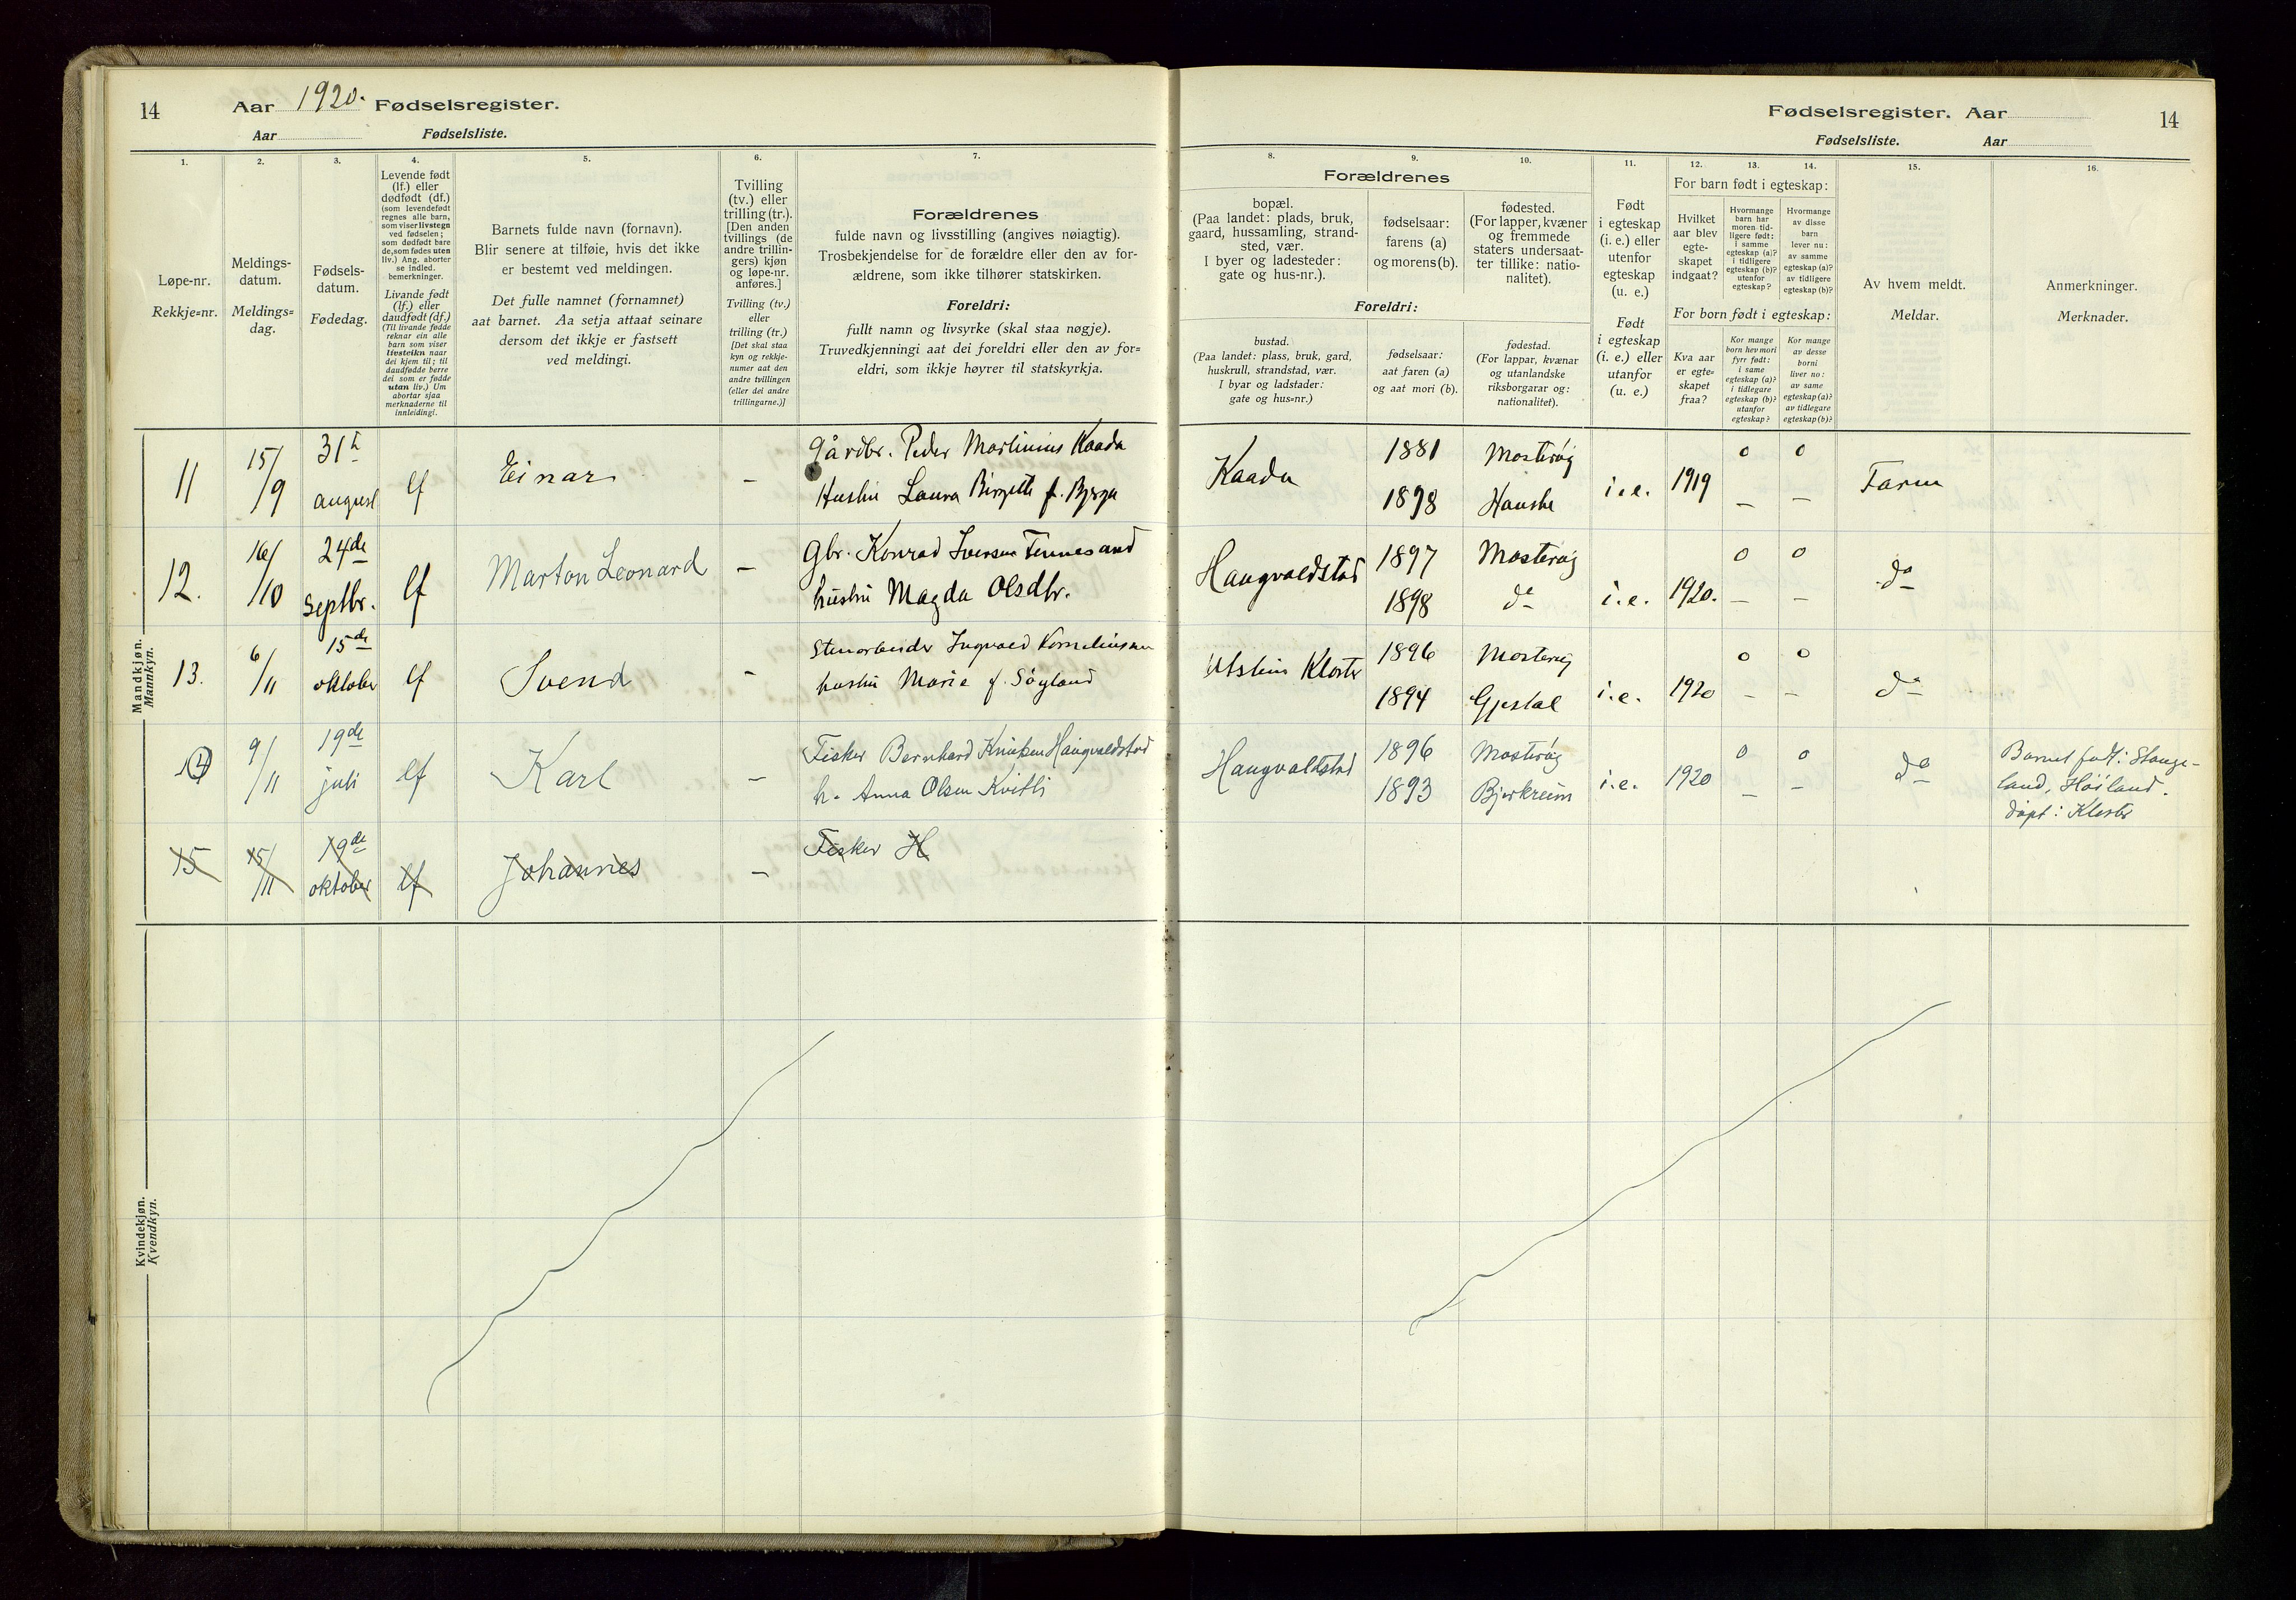 14
Aar 1920. Fødselsregister.
Aar Fødselsliste.
Fødselsregister. Aar
Fødselsliste. Aar
14
1.
Løpe-nr.
Rekkje=nr.
2.
Meldings-
datum.
Meldings=
dag.
3.
Fødsels-
datum.
Fødedag.
4.
Levende født
(lf.) eller
dødfødt (df.)
(som levendefødt
regnes alle barn,
som viser livstegn
ved fødselen;
som dødfødt bare
de, som fødes uten
liv.) Ang. aborter
se indled.
bemerkninger.
Livande født
(lf.) eller
daudfødt (df.)
(Til livande fødde
reknar ein alle
barn som viser
livsteikn naar
dei kjem til; til
daudfødde berre
dei som er fødde
utan liv.) Um
abortar sjaa
merknaderne til
innleidingi.
5.
Barnets fulde navn (fornavn).
Blir senere at tilføie, hvis det ikke
er bestemt ved meldingen.
Det fulle namnet (fornamnet)
aat barnet. Aa setja attaat seinare
dersom det ikkje er fastsett
ved meldingi.
6.
Tvilling
(tv.) eller
trilling (tr.).
[Den anden
tvillings (de
andre trillin-
gers) kjøn
og løpe-nr.
anføres.]
Tvilling (tv.)
eller
trilling (tr.)
[Det skal staa
kyn og rekkje-
numer aat den
andre tvillingen
(eller dei andre
trillingarne.)]
7.
Forældrenes
fulde navn og livsstilling (angives nøiagtig).
Trosbekjendelse for de forældre eller den av for-
ældrene, som ikke tilhører statskirken.
Foreldri:
fullt namn og livsyrke (skal staa nøgje).
Truvedkjenningi aat dei foreldri eller den av for=
eldri, som ikkje høyrer til statskyrkja.
8.
Forældrenes
bopæl.
(Paa landet: plads, bruk,
gaard, hussamling, strand-
sted, vær.
I byer og ladesteder:
gate og hus-nr.).
Foreldri:
bustad.
(Paa landet: plass, bruk, gard,
huskrull, strandstad, vær.
I byar og ladstader:
gate og hus=nr.)
9.
fødselsaar:
farens (a)
og morens (b).
fødselsaar:
aat faren (a)
og aat mori (b).
10.
fødested.
(For lapper, kvæner
og fremmede
staters undersaat-
ter tillike: natio-
nalitet).
fødestad.
(For lappar, kvænar
og utanlandske
riksborgarar og:
nationalitet).
11.
Født
i egteskap
(i. e.) eller
utenfor
egteskap
(u. e.)
Født
i egteskap
(i. e.) eller
utanfor
(u. e.)
12.
13.
14.
For barn født i egteskap:
Hvilket
aar blev
egte-
skapet
indgaat?
Hvormange
barn har
moren tid-
ligere født:
i samme
egteskap (a)?
i tidligere
egteskap (b)?
utenfor
egteskap?
Hvormange
av disse
barn
lever nu:
av samme
egteskap (a)?
av tidligere
egteskap (b)?
For born født i egteskap:
Kva aar
er egte=
skapet
fraa?
Kor mange
born hev mori
fyrr født:
i same
egteskap (a)?
i tidlegare
egteskap (b)?
utanfor
egteskap?
Kor mange
av desse
borni
liver no:
av same
egteskap (a)?
av tidlegare
egteskap (b)?
15.
Av hvem meldt.
Meldar.
16.
Anmerkninger.
Merknader.
Mandkjøn.
Mannkyn.
11 15/9 31te august lf Einar – Gårdbr. Peder Martinius Kaada
Hustru Laura Birgitte f. Bjerga
Kaada 1881 Mosterøy 0 0 Farm
1898 Hauske i.e. 1919 – –
12. 16/10 24de septbr. lf Marton Leonard – Gbr. Konrad Iversen Finnesand
hustru Magda Olsdtr.
Haugvaldstad 1897 Mosterøy 0 0 do
1898 do i.e. 1920. – –
13. 6/11 15de oktober lf Svend – Stenarbeider Ingvald Korneliussen
hustru Marie f. Søyland
Utstein Kloster 1896 Mosterøy 0 0
1894 Gjestal i.e. 1920 – – do
14 9/11 19de juli lf Karl – Fisker Bernhard Knutsen Haugvaldstad
h. Anna Olsen Kvitli
Haugvaldstad 1896 Mosterøy 0 0 do
1893 Bjerkreim i.e. 1920 – –
Barnet født: Stange-
land, Høiland.
døpt: Kloster
15 15/11 19de oktober lf Johannes – Fisker H
Kvindekjøn.
Kvendkyn.